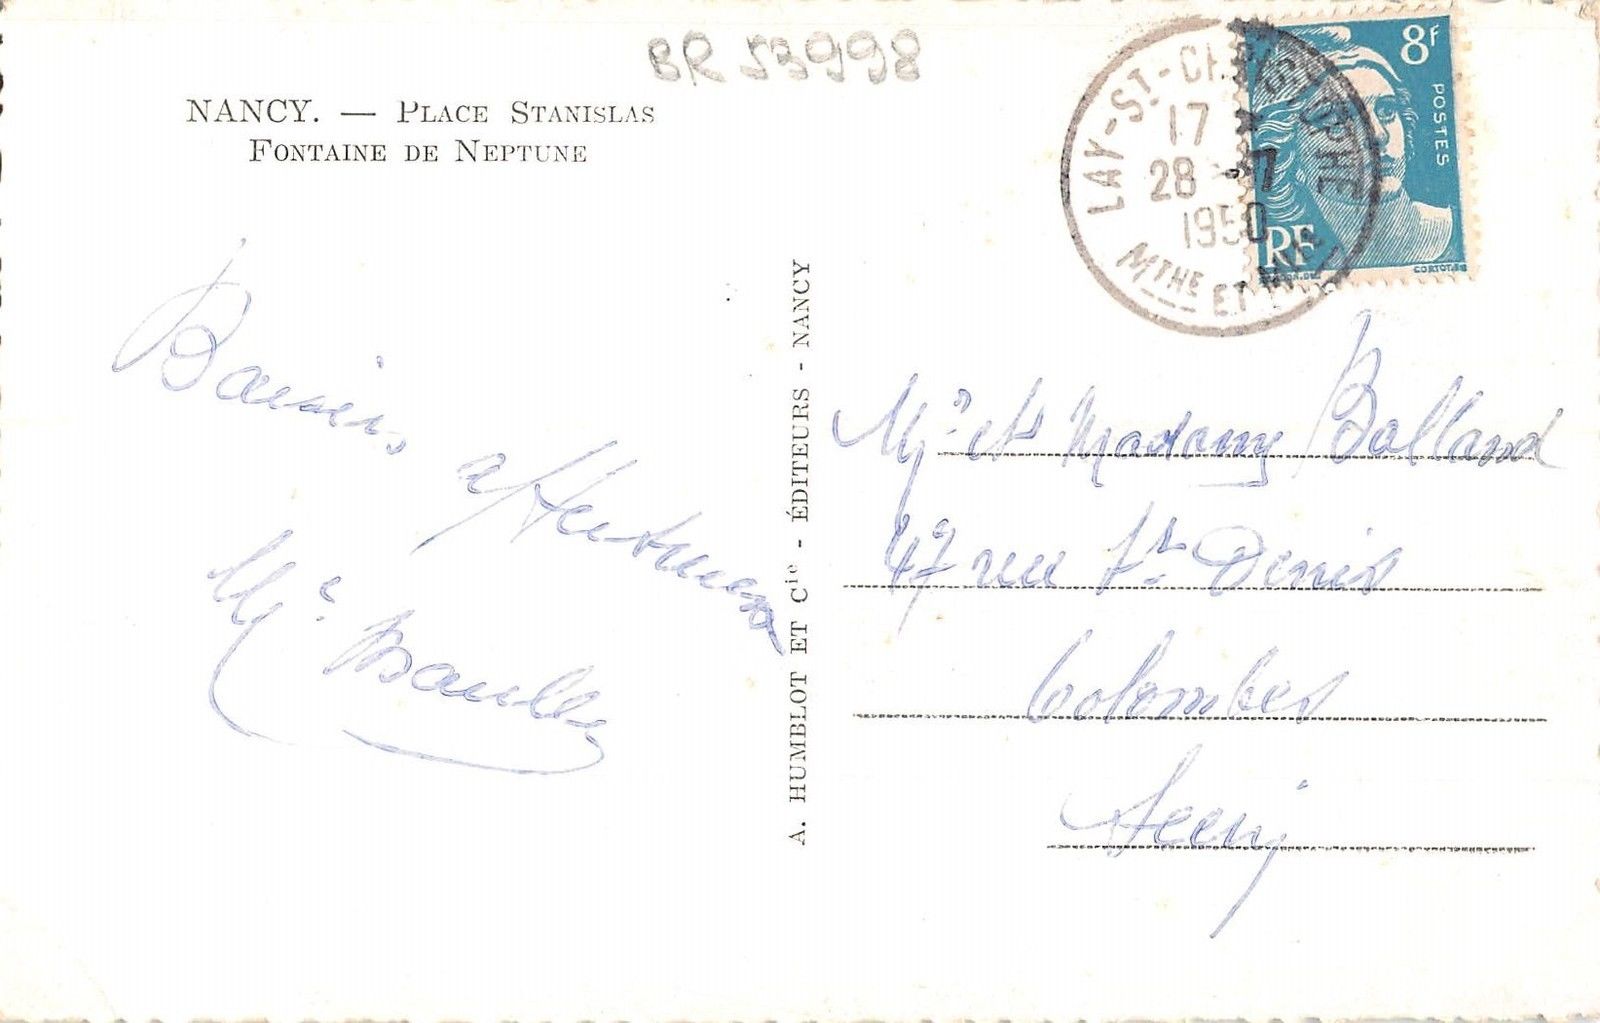 BR 53998
NANCY. — PLACE STANISLAS
FONTAINE DE NEPTUNE
LAY-ST-CHRISTOPHE
17 *
28 - 7
1950
MTHE ET MLLE
8f
POSTES
RF
CORTOT
Baisers affectueux
A. HUMBLOT ET Cie - ÉDITEURS - NANCY
Mr et Madame Balland
47 rue St Denis
Colombes
Seine